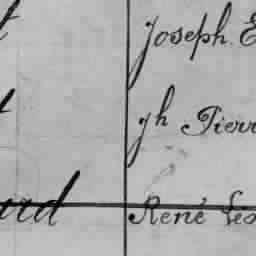 t Joseph E
t Jh Pierr
ard René Léo